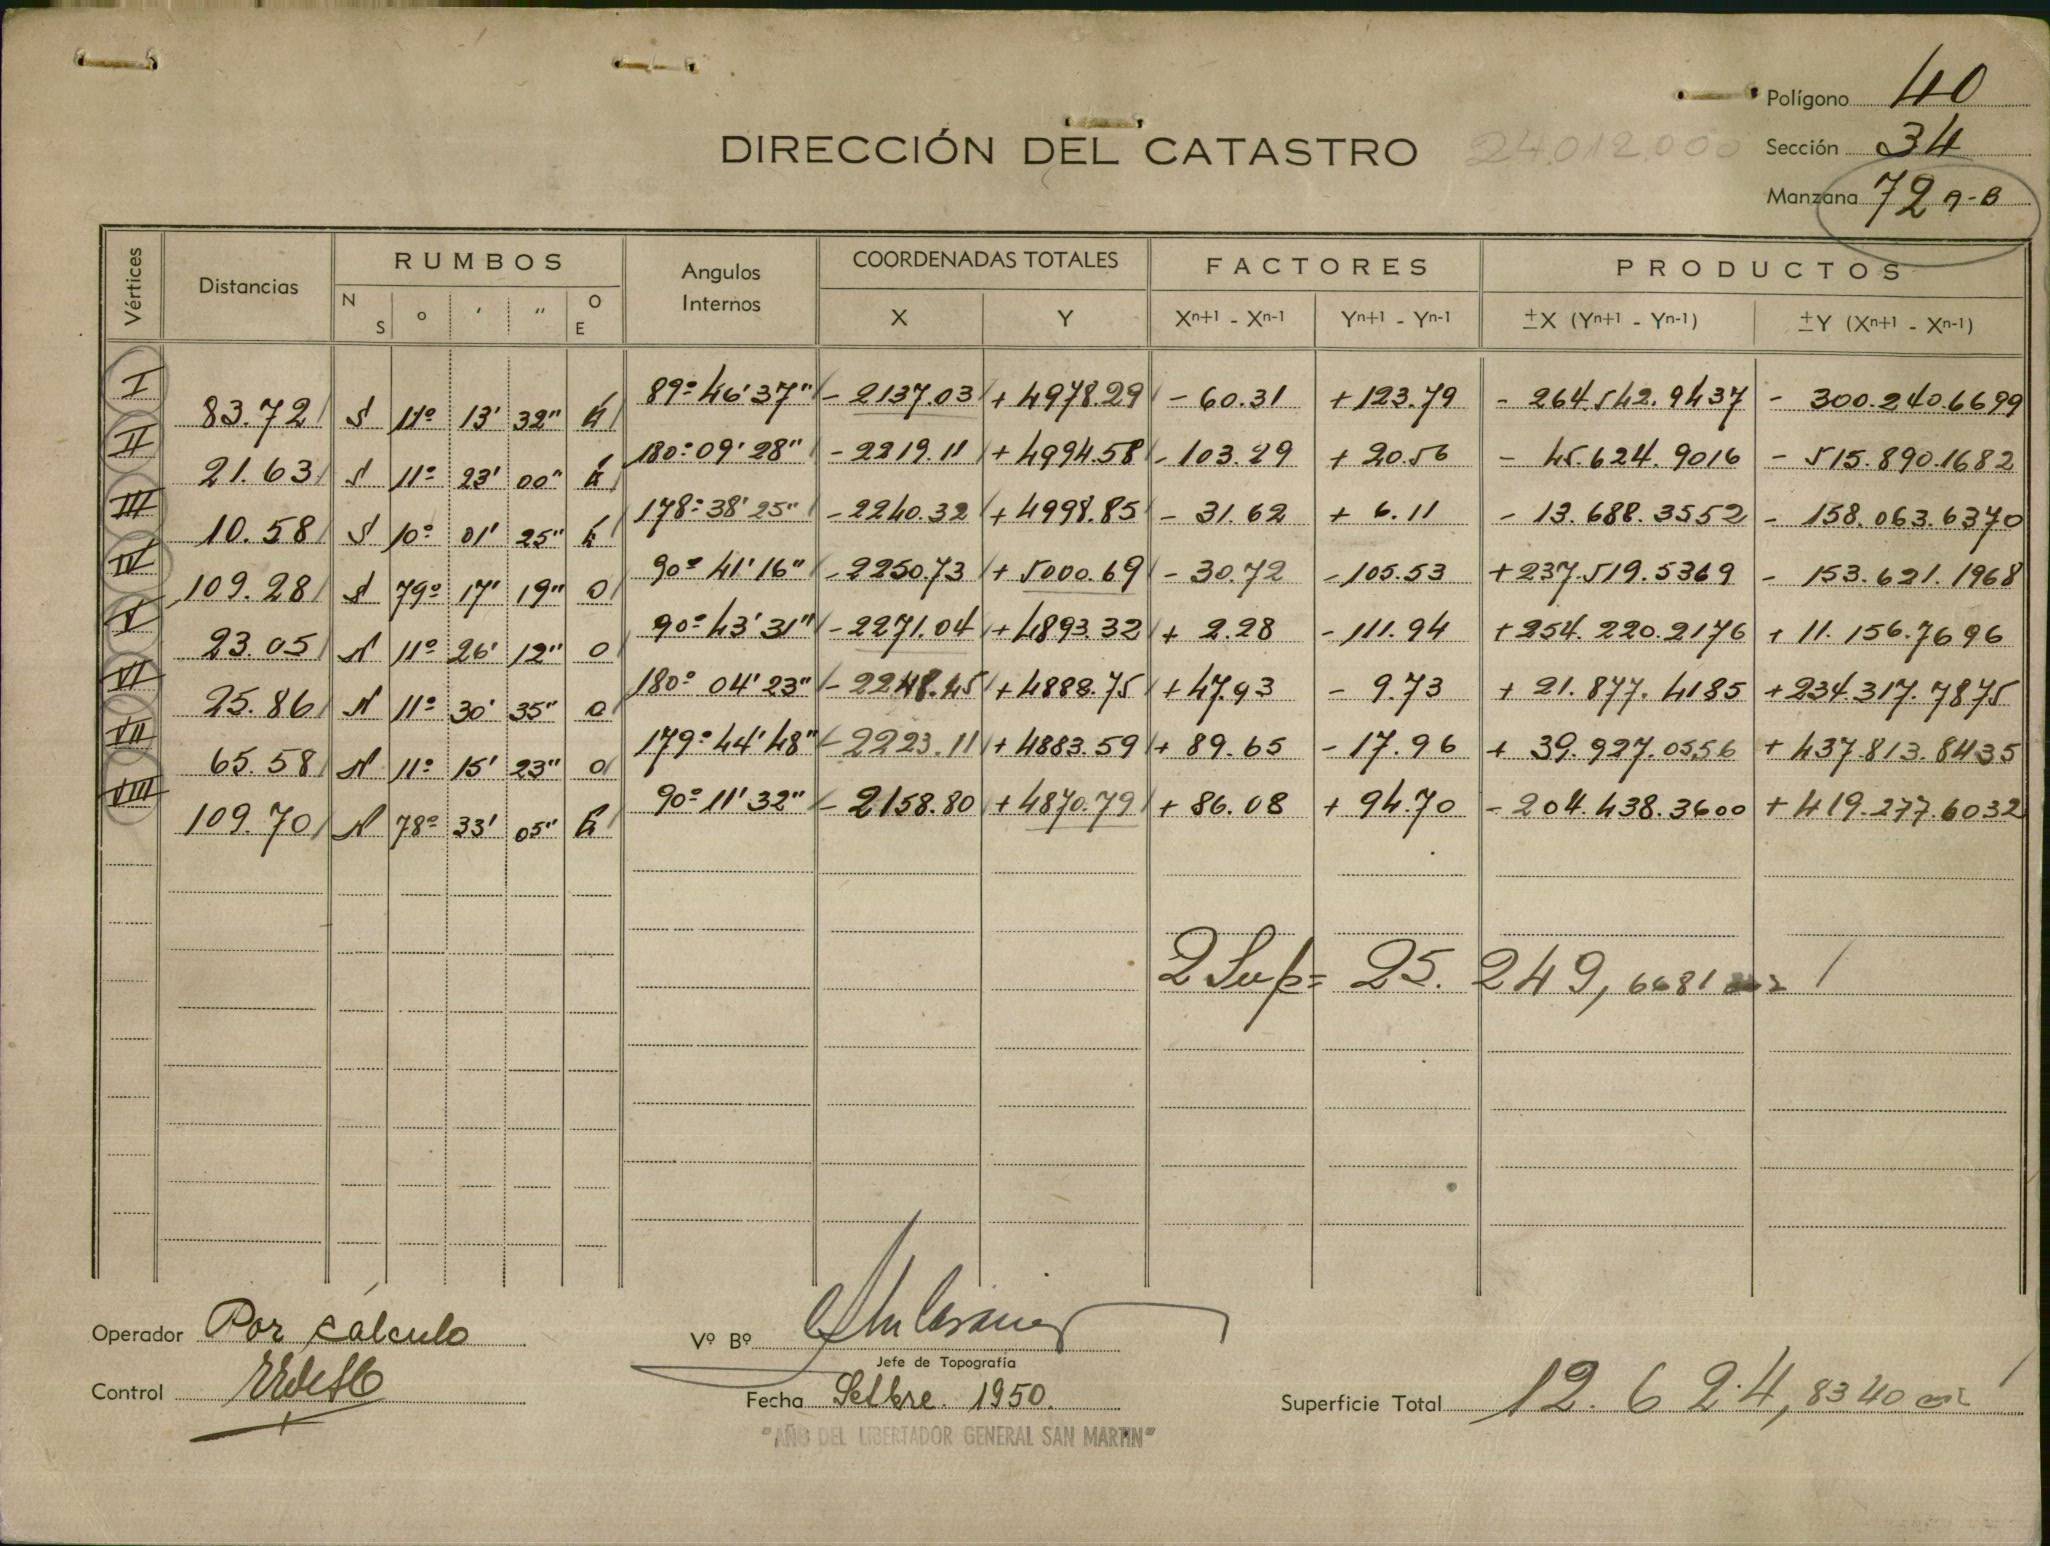 Polígono 40
DIRECCIÓN DEL CATASTRO 24.012.000
Sección 34
Manzana 72 A-B
Vértices Distancias RUMBOS Angulos Internos COORDENADAS TOTALES FACTORES PRODUCTOS
N S º ′ ″ O E X Y Xn+1 - Xn-1 Yn+1 - Yn-1 ±X (Yn+1 - Yn-1) ±Y (Xn+1 - Xn-1)
I 89º 46' 37" - 2137.03 + 4978.29 - 60.31 + 123.79 - 264.542.9437 - 300.240.6699
83.72 S 11º 13' 32" E
II 180º 09' 28" - 2219.11 + 4994.58 - 103.29 + 20.56 - 45.624.9016 - 515.890.1682
21.63 S 11º 23' 00" E
III 178º 38' 25" - 2240.32 + 4998.85 - 31.62 + 6.11 - 13.688.3552 - 158.063.6370
10.58 S 10º 01' 25" E
IV 90º 41' 16" - 2250.73 + 5000.69 - 30.72 - 105.53 + 237.519.5369 - 153.621.1968
109.28 S 79º 17' 19" O
V 90º 43' 31" - 2271.04 + 4893.32 + 2.28 - 111.94 + 254.220.2176 + 11.156.7696
23.05 N 11º 26' 12" O
VI 180º 04' 23" - 2248.45 + 4888.75 + 47.93 - 9.73 + 21.877.4185 + 234.317.7875
25.86 N 11º 30' 35" O
VII 179º 44' 48" - 2223.11 + 4883.59 + 89.65 - 17.96 + 39.927.0556 + 437.813.8435
65.58 N 11º 15' 23" O
VIII 90º 11' 32" - 2158.80 + 4870.79 + 86.08 + 94.70 - 204.438.3600 + 419.277.6032
109.70 N 78º 33' 05" E
2 Sup = 25.249,6681 m2
Operador Por cálculo
Vº Bº
Jefe de Topografía
Control
Fecha Setbre. 1950.
Superficie Total 12.624,8340 m2
"AÑO DEL LIBERTADOR GENERAL SAN MARTIN"